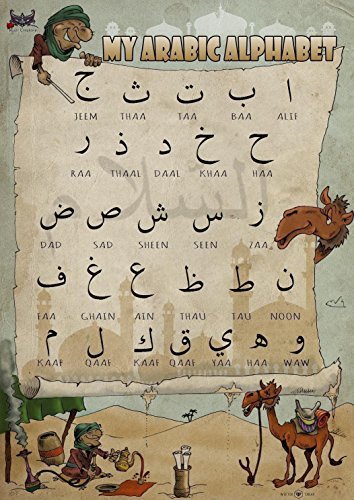 MY ARABIC ALPHABET
ا ب ت ث ج
JEEM THAA TAA BAA ALIF
ح خ د ذ ر
RAA THAAL DAAL KHAA HAA
السلام
ز س ش ص ض
DAD SAD SHEEN SEEN ZAA
ن ط ظ ع غ ف
FAA GHAIN AIN THAU TAU NOON
و ه ي ق ك ل م
KAAF QAAF KAAF QAAF YAA HAA WAW